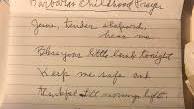 Childhood Prayer
Jesus, tender shepherd,
hear me
Bless your little lamb tonight
Keep me safe and
till morning light.